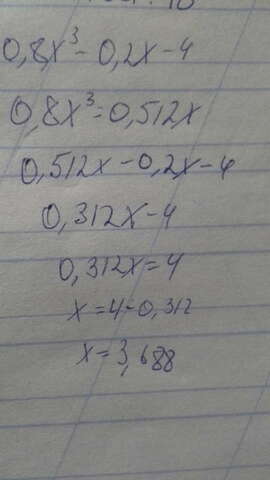 0,8x³-0,2x-4
0,8x³=0,512x
0,512x-0,2x-4
0,312x-4
0,312x=4
x=4-0,312
x=3,688